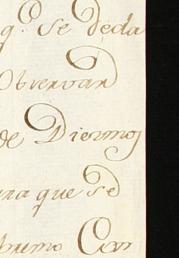 q.º se deda
Observan
de Diezmos
na que se
humo Con